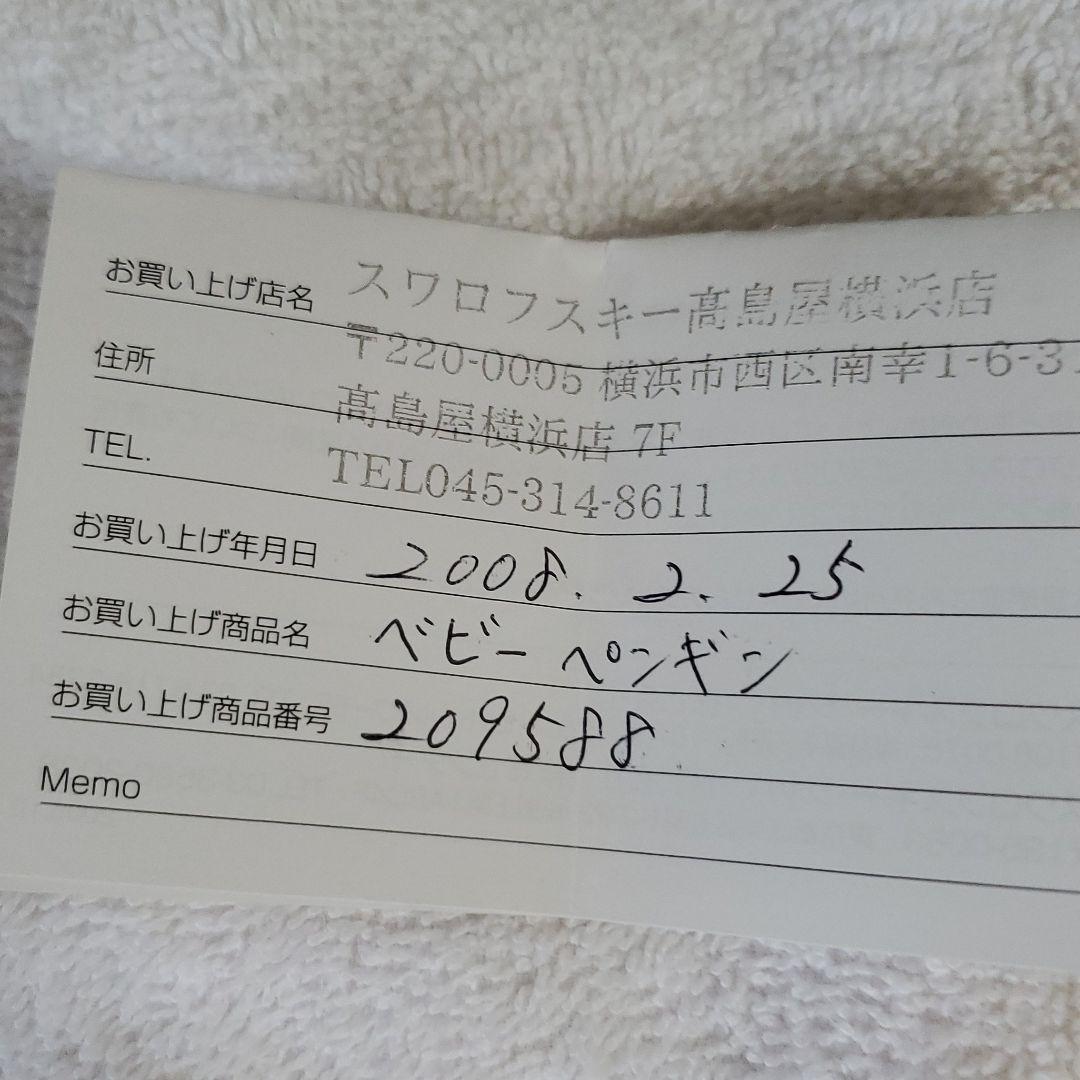 お買い上げ店名 スワロフスキー髙島屋横浜店
住所 〒220-0005 横浜市西区南幸1-6-31
髙島屋横浜店 7F
TEL. TEL045-314-8611
お買い上げ年月日 2008. 2. 25
お買い上げ商品名 ベビーペンギン
お買い上げ商品番号 209588
Memo